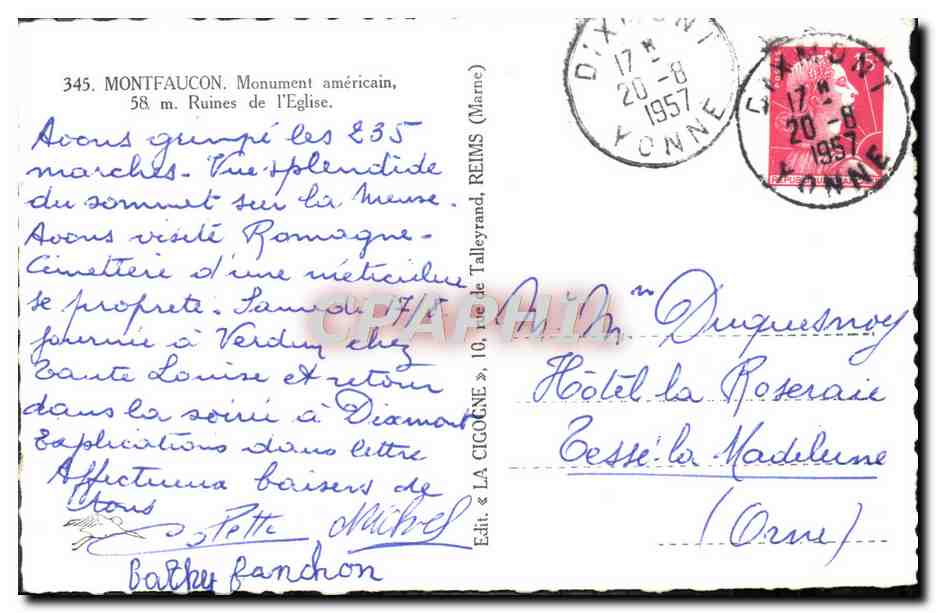 345. MONTFAUCON. Monument américain,
58 m. Ruines de l'Eglise.
Avons grimpé les 235
marches. Vue splendide
du sommet sur la Meuse.
Avons visité Romagne-
Cimettère d'une méticuleu
se propreté. Samedi 17/8
journée à Verdun chez
Tante Louise et retour
dans la soirée à Dixmont
Explications dans lettre
Affectueux baisers de
tous
Michel
Cathy Fanchon
Edit. « LA CIGOGNE », 10, rue de Talleyrand, REIMS (Marne)
DIXMONT
17 H
20 -8
1957
YONNE
DIXMONT
17 H
20 -8
1957
YONNE
CPAPHIL
M. Mme Duquesnoy
Hôtel la Roseraie
Tessé la Madeleine
(Orne)